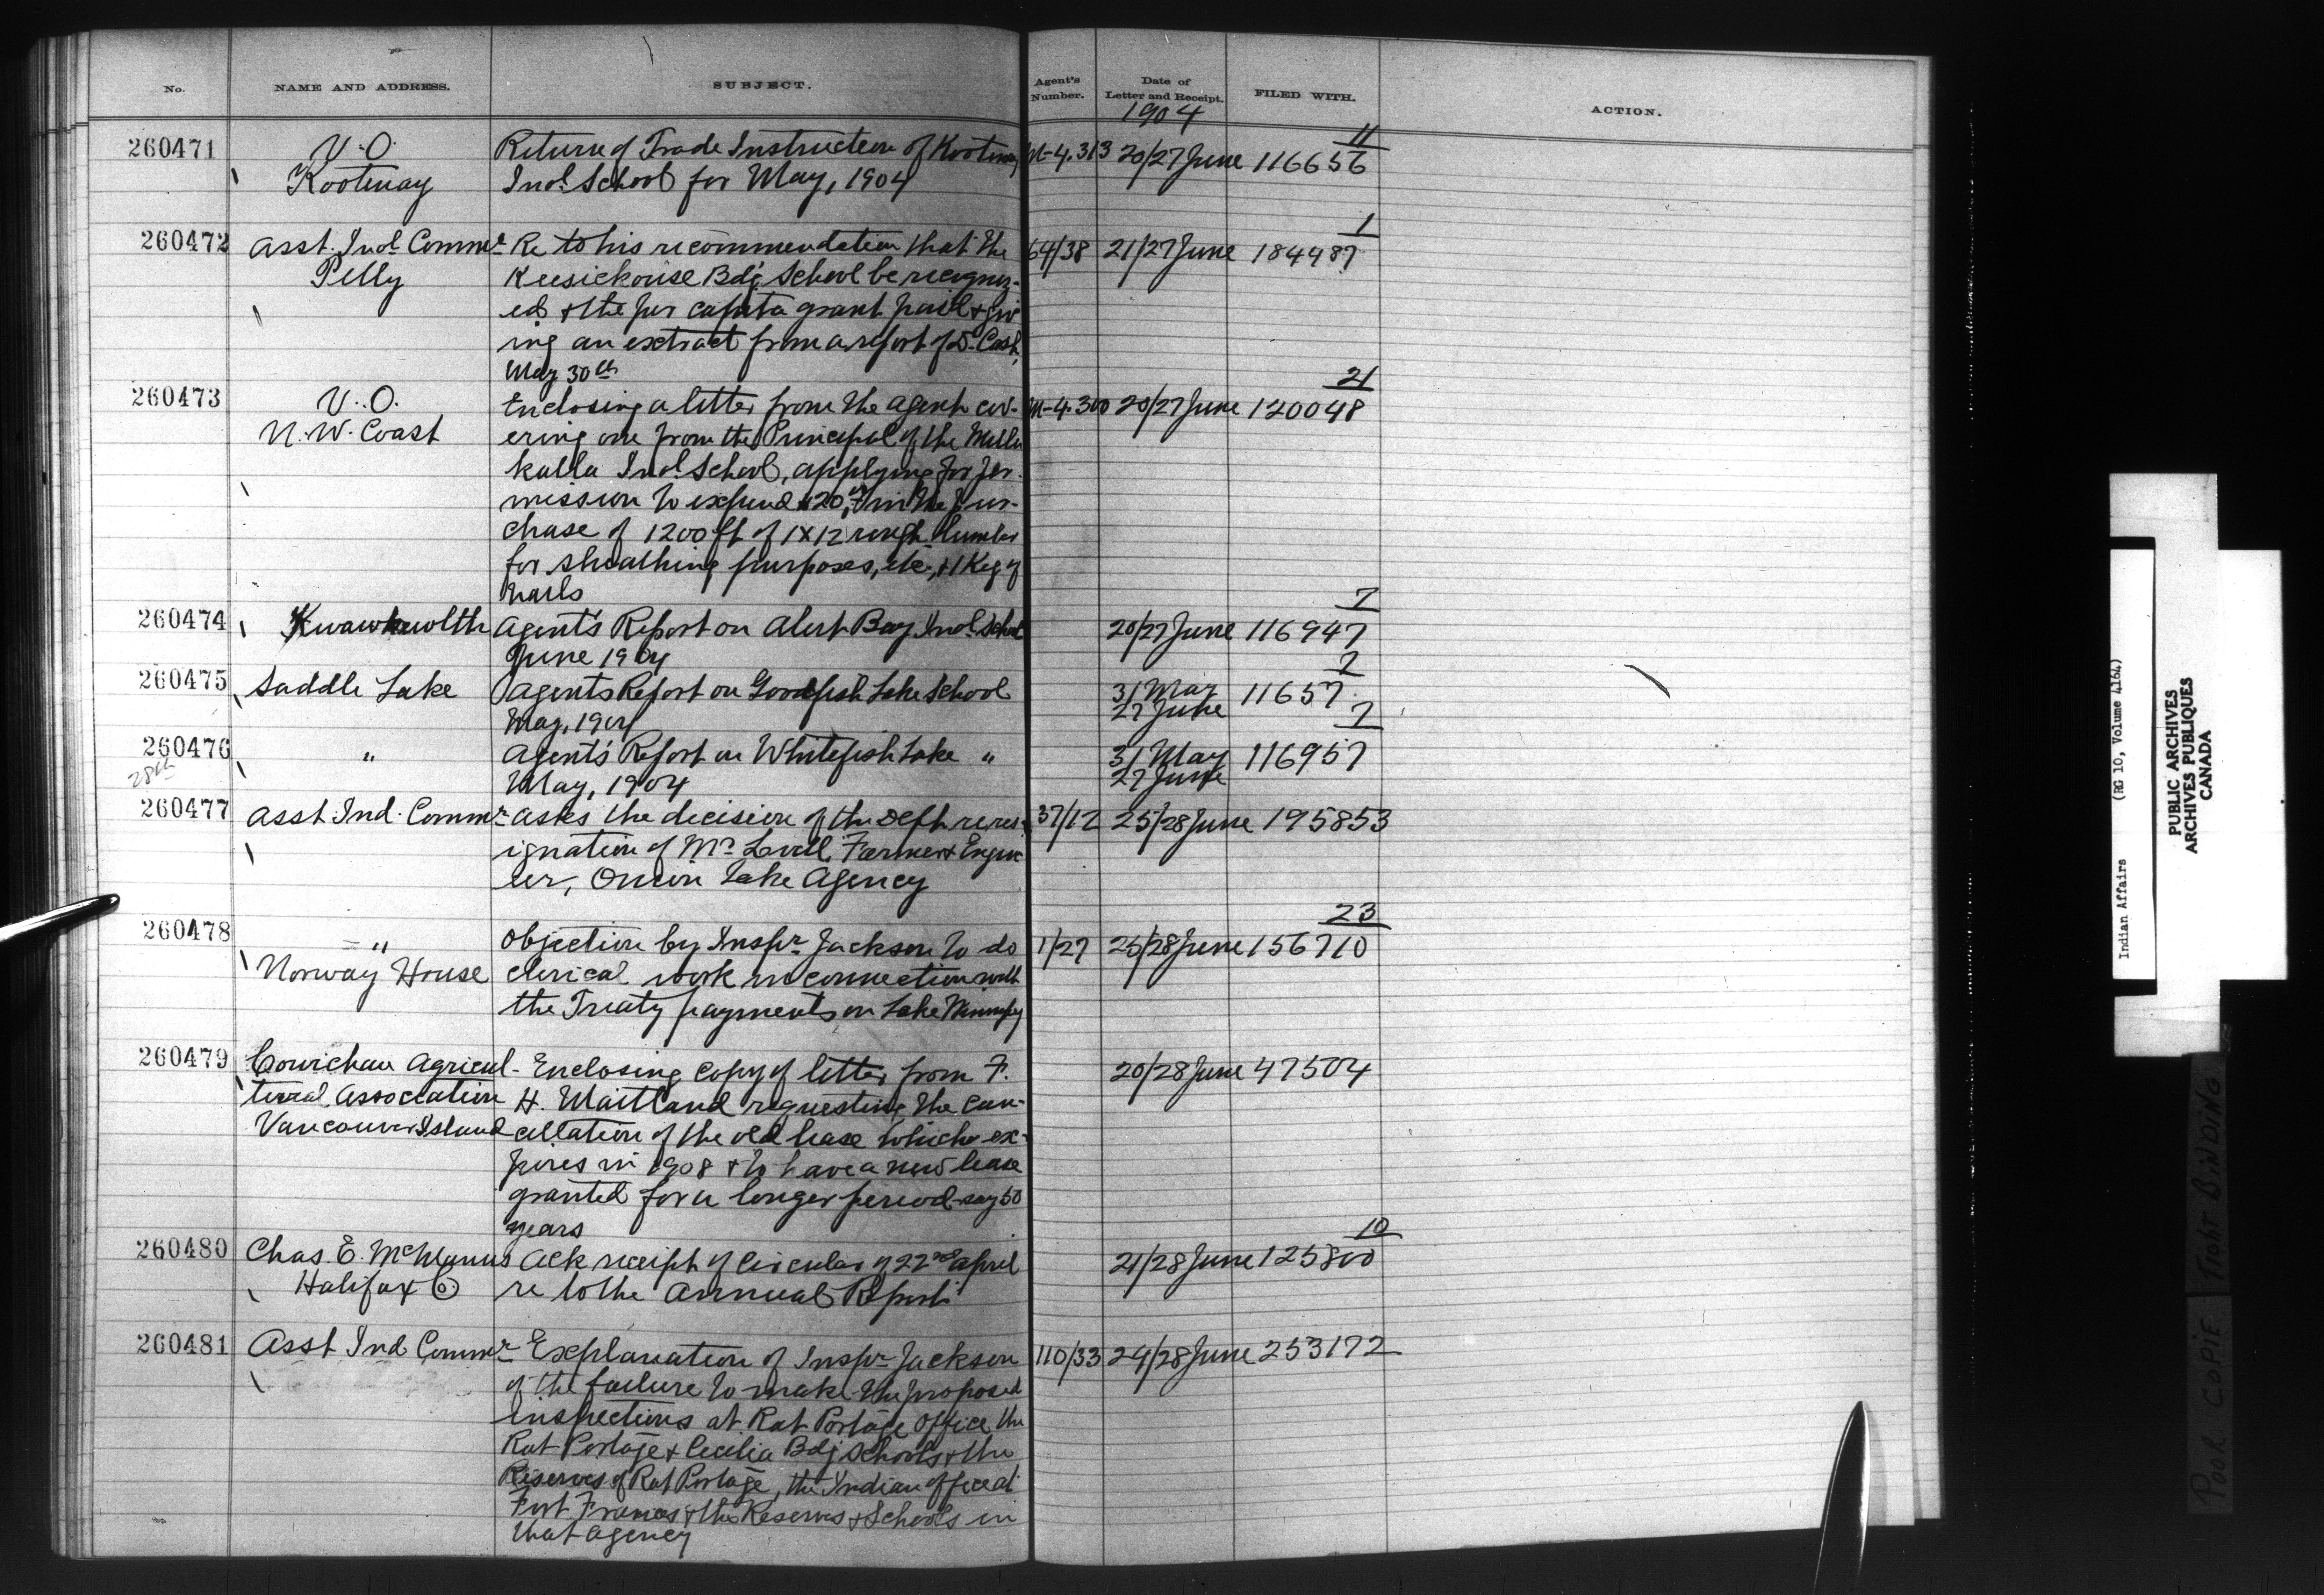 No. NAME AND ADDRESS. SUBJECT. Agent's Number. Date of Letter and Receipt. FILED WITH. ACTION.
1904
11
260471 V.O. Return of Trade Instruction of Kootenay M-4.313 20/27 June 116656
Kootenay Ind. School for May, 1904
1
260472 Asst. Ind. Commr. Re to his recommendation that the 64/38 21/27 June 184487
Pelly Keesickouse Bdg. School be recogniz-
ed & the per capita grant paid & giv
ing an extract from a report of Dr. Cash,
May 30th
21
260473 V.O. Enclosing a letter from the agent cov- M-4.300 20/27 June 120048
N.W. Coast ering one from the Principal of the Metla
katla Ind. School, applying for per-
mission to expend in the pur-
chase of 1200 ft of 1x12 rough lumber
for sheathing purposes, etc, & 1 Keg of
nails
7
260474 Kwawkewlth Agent's Report on Alert Bay Ind. School 20/27 June 116947
June 1904
2
260475 Saddle Lake Agents Report on Goodfish Lake School 31 May 11657
May, 1904 27 June
7
260476 " Agent's Report on Whitefish Lake " 31 May 116957
28th May, 1904 27 June
260477 Asst. Ind. Commr. Asks the decision of the Dept. re res- 37/12 25/28 June 195853
ignation of Mr. Lovell, Farmer & Engin
eer, Onion Lake Agency
23
260478 " Objection by Inspr. Jackson to do 1/27 25/28 June 156710
Norway House clerical work in connection with
the Treaty payments on Lake Winnipeg
260479 Cowichan Agricul- Enclosing copy of letter from F. 20/28 June 47504
tural Association H. Maitland requesting the can-
Vancouver Island cellation of the old lease which ex-
pires in 1908 & to have a new lease
granted for a longer period say 50
years
10
260480 Chas. E. McManus Ack receipt of Circular of 22nd April 21/28 June 125800
Halifax Co. re to the Annual Report
260481 Asst Ind Commr. Explanation of Inspr. Jackson 110/33 24/28 June 253172
of the failure to make the proposed
inspections at Rat Portage Office, the
Rat Portage & Cecilia Bdg Schools & the
Reserves of Rat Portage, the Indian office at
Fort Frances & the Reserves & Schools in
that agency
Indian Affairs (RG 10, Volume 4164)
PUBLIC ARCHIVES
ARCHIVES PUBLIQUES
CANADA
POOR COPIE TIGHT BINDING